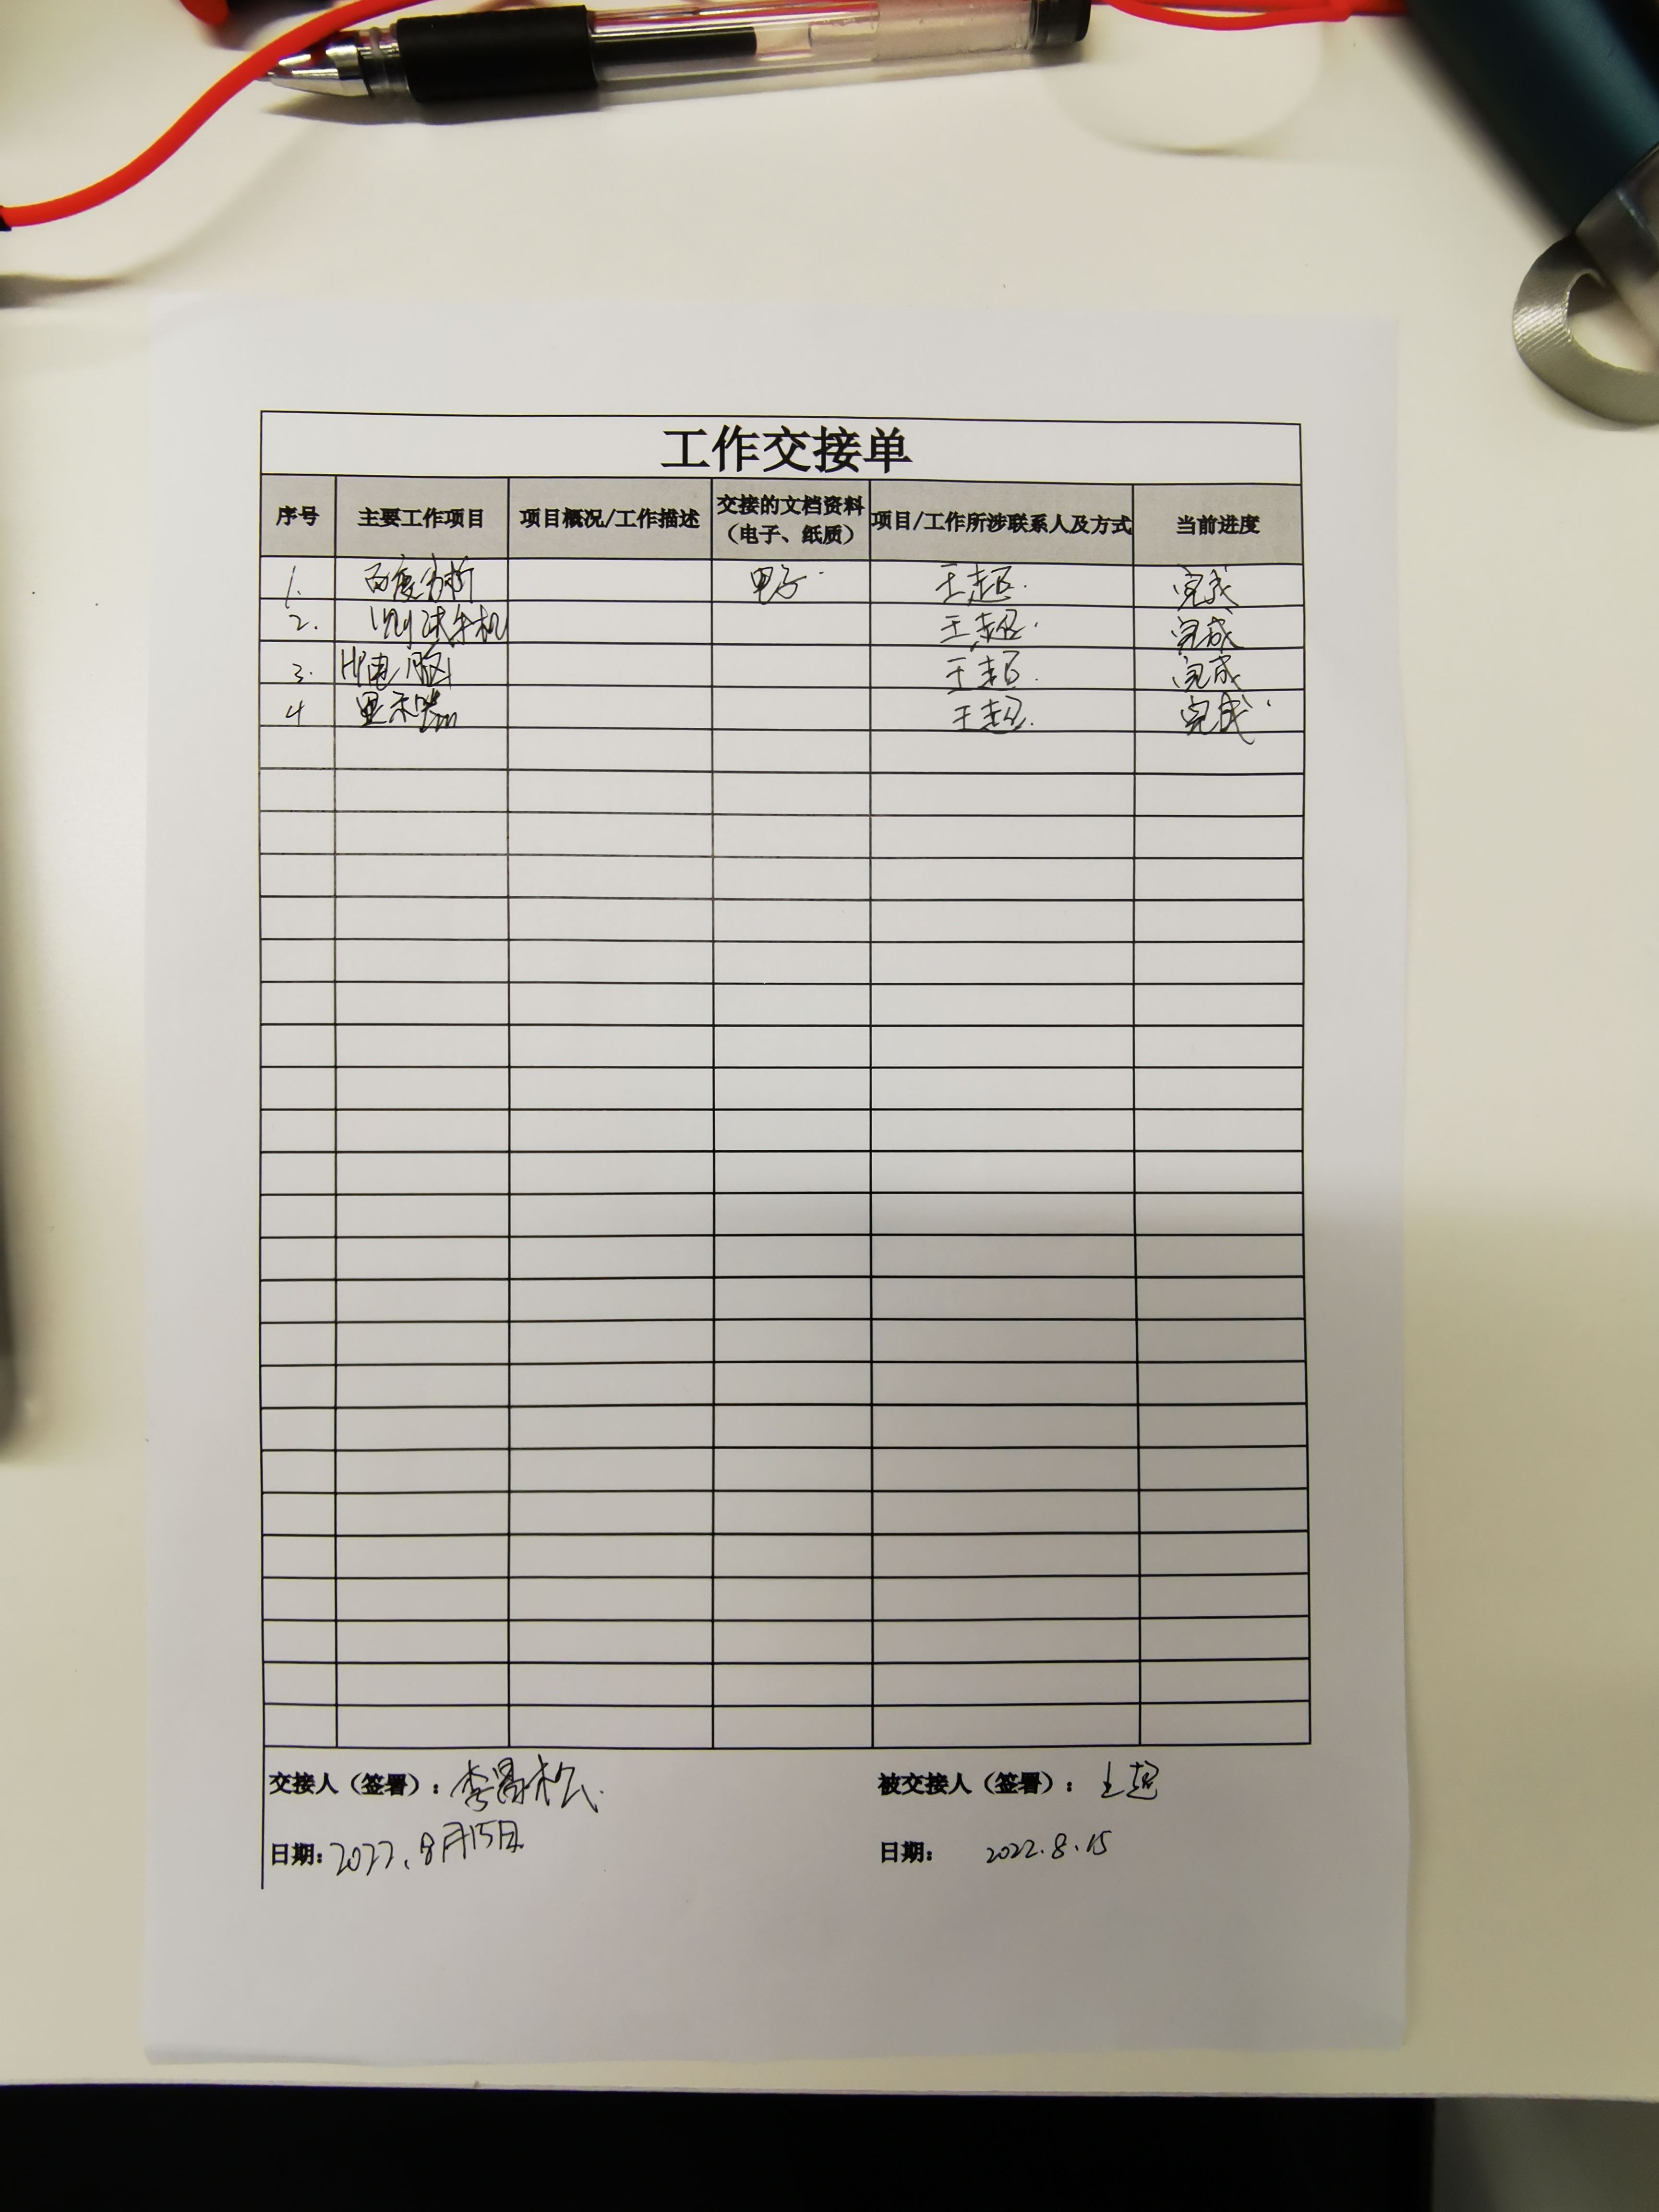 工作交接单
序号 主要工作项目 项目概况/工作描述 交接的文档资料（电子、纸质） 项目/工作所涉联系人及方式 当前进度
1. 百度分析 电子 王超 完成
2. 测试手机 王超 完成
3. HP电脑 王超 完成
4 显示器 王超 完成
交接人（签署）：李昌松 被交接人（签署）：王超
日期：2022.8月15日 日期：2022.8.15